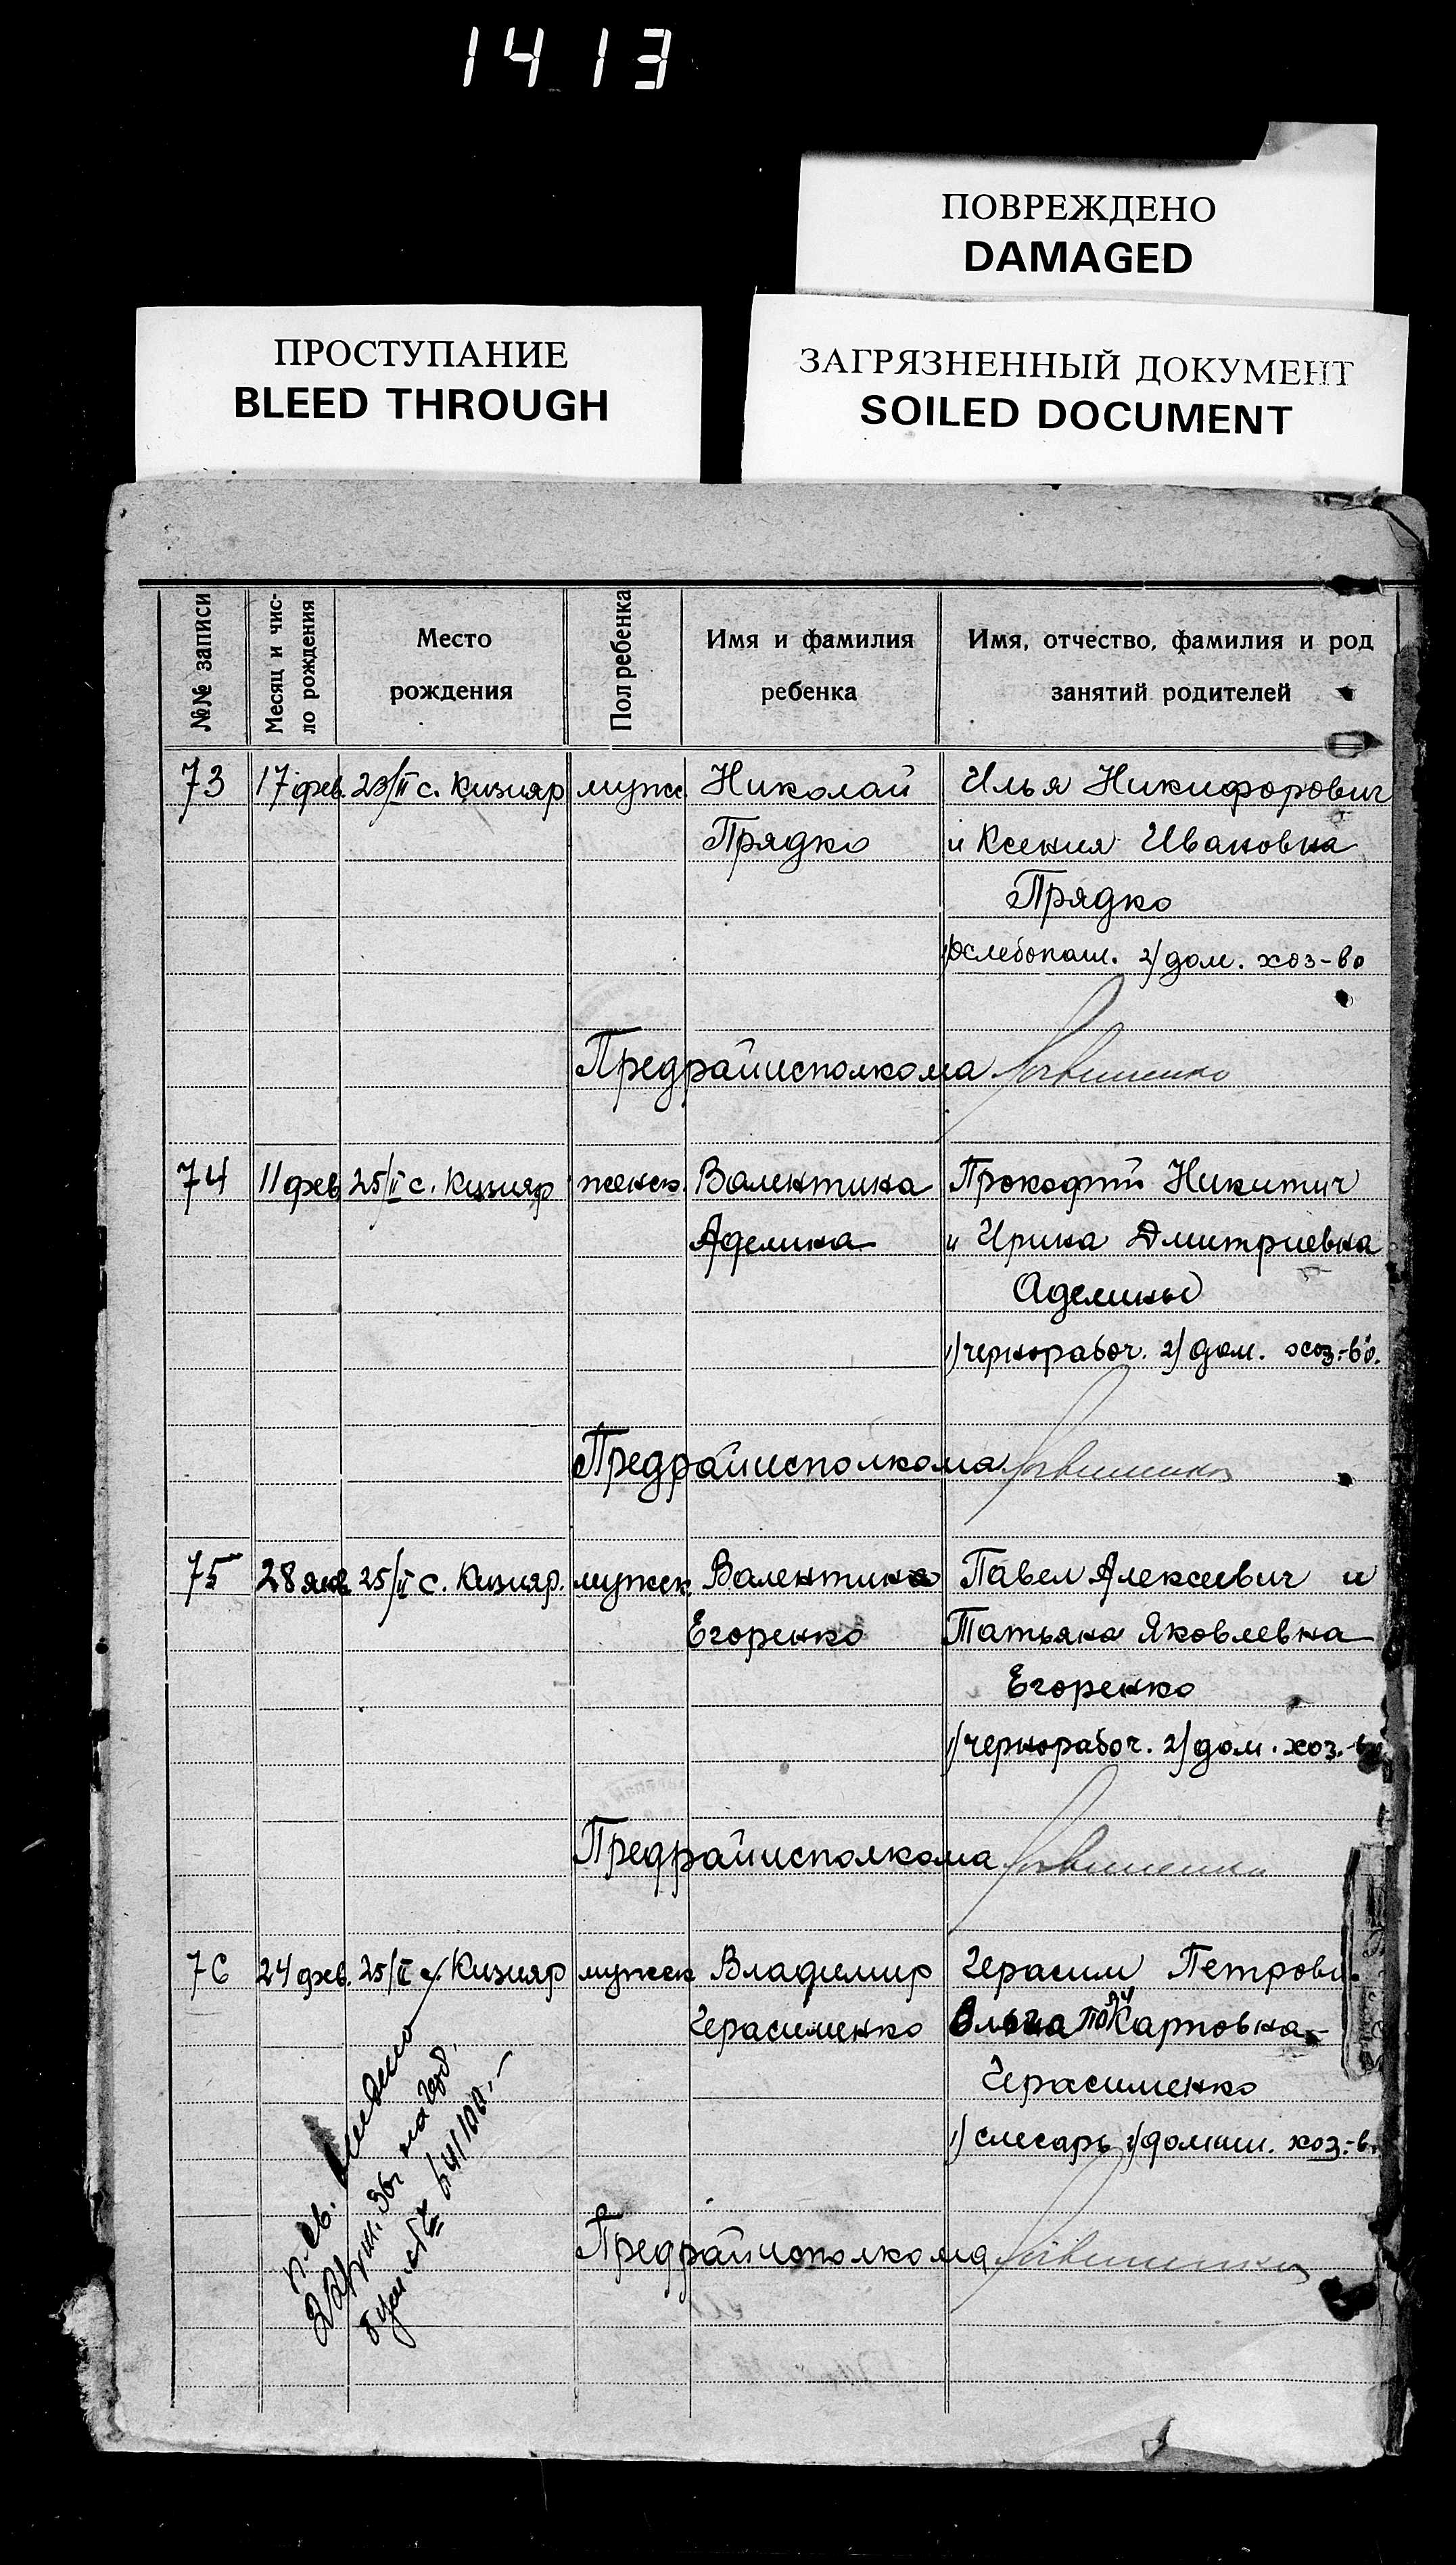 1413
ПОВРЕЖДЕНО
DAMAGED
ПРОСТУПАНИЕ
BLEED THROUGH
ЗАГРЯЗНЕННЫЙ ДОКУМЕНТ
SOILED DOCUMENT
№№ записи
Месяц и чис-
ло рождения
Место
рождения
Пол ребенка
Имя и фамилия
ребенка
Имя, отчество, фамилия и род
занятий родителей
73 17 фев. 23/II с. Кизияр мужс. Николай Илья Никифорович
Прядко и Ксения Ивановна
Прядко
1) хлебопаш. 2) дом. хоз-во
Предрайисполкома
74 11 фев 25/II с. Кизияр женск. Валентина Прокофий Никитич
Аделина и Ирина Дмитриевна
Аделины
1) чернорабоч. 2) дом. хоз-во.
Предрайисполкома
75 28 янв. 25/II с. Кизияр. мужск. Валентин Павел Алексеевич и
Егоренко Татьяна Яковлевна
Егоренко
1) чернорабоч. 2) дом. хоз.-во
Предрайисполкома
76 24 фев. 25/II с. Кизияр мужск Владимир Герасим Петрови
Герасименко Ольга Карповна
Герасименко
1) слесарь 2) домаш. хоз-в
Предрайисполкома